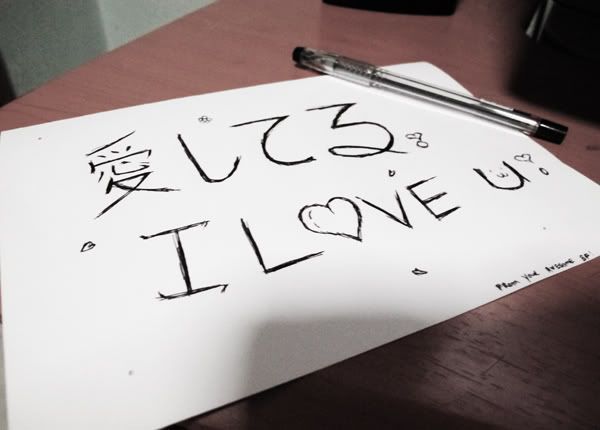 愛してる
I LOVE U
From your Awesome BF